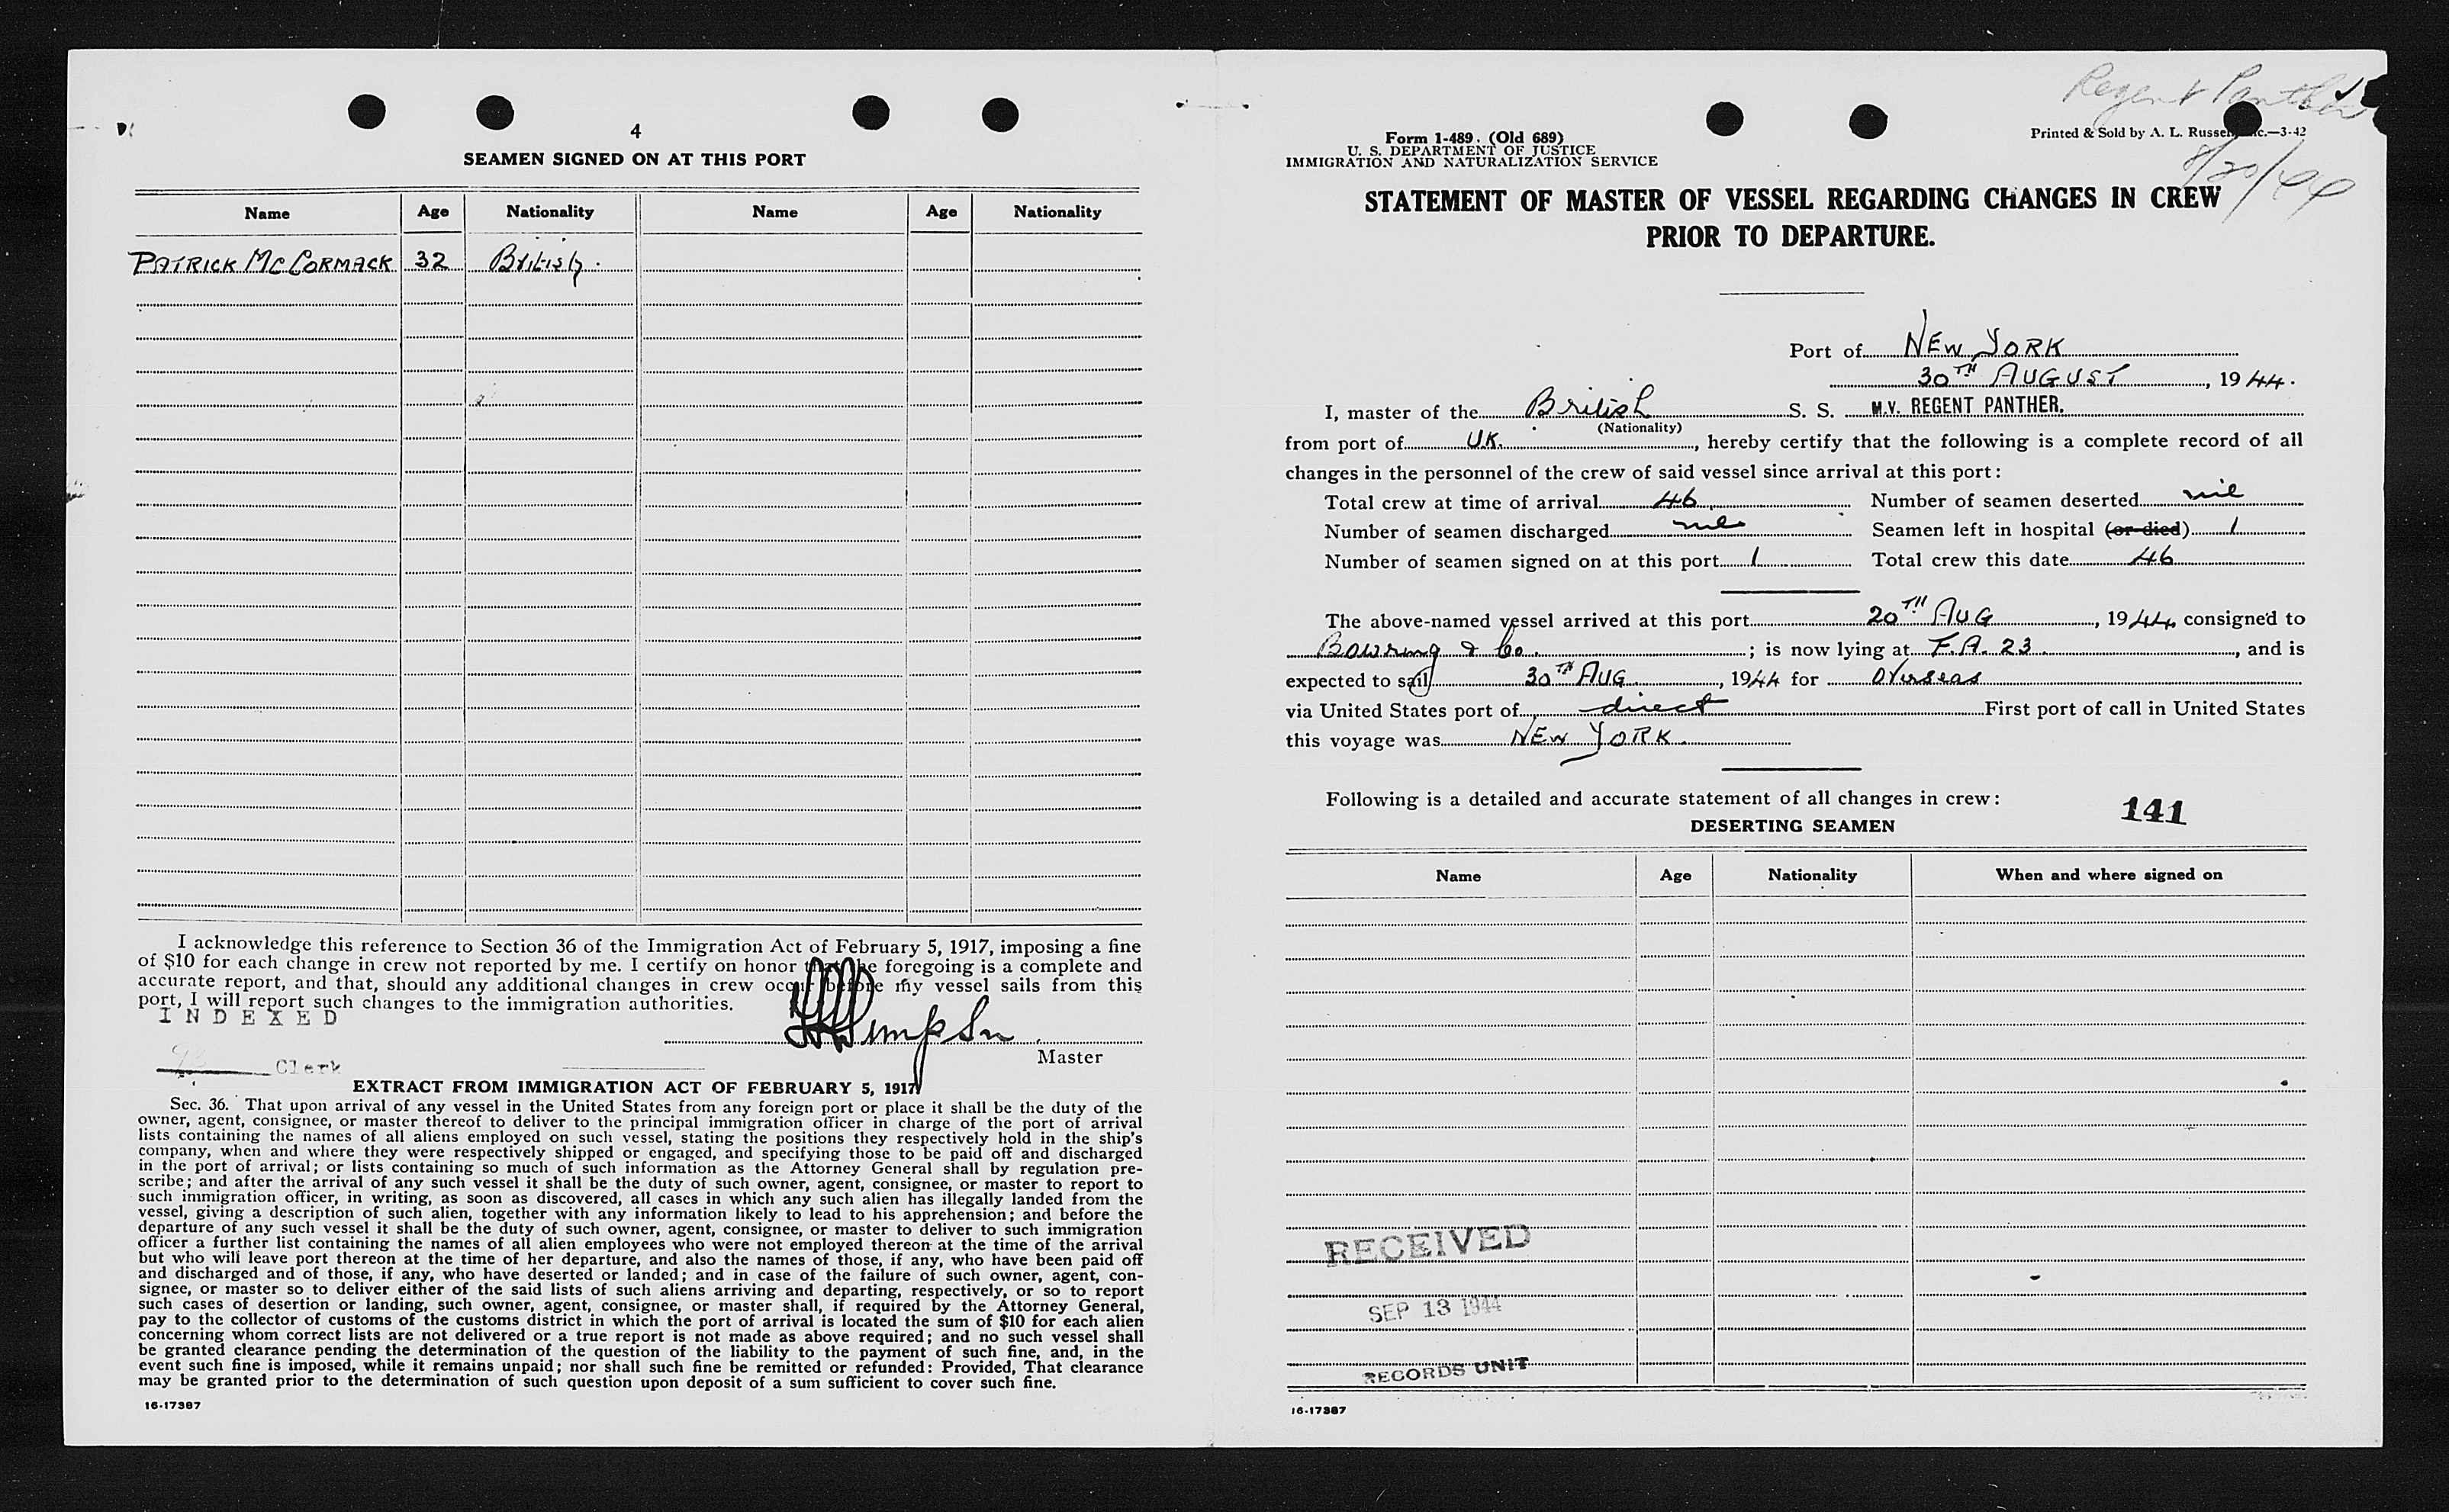 4
SEAMEN SIGNED ON AT THIS PORT
Name Age Nationality Name Age Nationality
PATRICK MCCORMACK 32 British.
I acknowledge this reference to Section 36 of the Immigration Act of February 5, 1917, imposing a fine
of $10 for each change in crew not reported by me. I certify on honor that the foregoing is a complete and
accurate report, and that, should any additional changes in crew occur before my vessel sails from this
port, I will report such changes to the immigration authorities.
INDEXED
Simpson
Master
Clerk
EXTRACT FROM IMMIGRATION ACT OF FEBRUARY 5, 1917
Sec. 36. That upon arrival of any vessel in the United States from any foreign port or place it shall be the duty of the
owner, agent, consignee, or master thereof to deliver to the principal immigration officer in charge of the port of arrival
lists containing the names of all aliens employed on such vessel, stating the positions they respectively hold in the ship's
company, when and where they were respectively shipped or engaged, and specifying those to be paid off and discharged
in the port of arrival; or lists containing so much of such information as the Attorney General shall by regulation pre-
scribe; and after the arrival of any such vessel it shall be the duty of such owner, agent, consignee, or master to report to
such immigration officer, in writing, as soon as discovered, all cases in which any such alien has illegally landed from the
vessel, giving a description of such alien, together with any information likely to lead to his apprehension; and before the
departure of any such vessel it shall be the duty of such owner, agent, consignee, or master to deliver to such immigration
officer a further list containing the names of all alien employees who were not employed thereon at the time of the arrival
but who will leave port thereon at the time of her departure, and also the names of those, if any, who have been paid off
and discharged and of those, if any, who have deserted or landed; and in case of the failure of such owner, agent, con-
signee, or master so to deliver either of the said lists of such aliens arriving and departing, respectively, or so to report
such cases of desertion or landing, such owner, agent, consignee, or master shall, if required by the Attorney General,
pay to the collector of customs of the customs district in which the port of arrival is located the sum of $10 for each alien
concerning whom correct lists are not delivered or a true report is not made as above required; and no such vessel shall
be granted clearance pending the determination of the question of the liability to the payment of such fine, and, in the
event such fine is imposed, while it remains unpaid; nor shall such fine be remitted or refunded: Provided, That clearance
may be granted prior to the determination of such question upon deposit of a sum sufficient to cover such fine.
16-17387
Regent Panther
8/20/44
Form 1-489. (Old 689)
U. S. DEPARTMENT OF JUSTICE
IMMIGRATION AND NATURALIZATION SERVICE
Printed & Sold by A. L. Russell, Inc.—3-42
STATEMENT OF MASTER OF VESSEL REGARDING CHANGES IN CREW
PRIOR TO DEPARTURE.
Port of NEW YORK
30TH AUGUST, 1944.
I, master of the British S. S. M.V. REGENT PANTHER.
(Nationality)
from port of UK., hereby certify that the following is a complete record of all
changes in the personnel of the crew of said vessel since arrival at this port:
Total crew at time of arrival 46 Number of seamen deserted nil
Number of seamen discharged nil Seamen left in hospital (or died) 1
Number of seamen signed on at this port 1 Total crew this date 46
The above-named vessel arrived at this port 20TH AUG, 1944, consigned to
Bowring & Co.; is now lying at F.A. 23., and is
expected to sail 30TH AUG, 1944 for Overseas
via United States port of direct First port of call in United States
this voyage was NEW YORK.
Following is a detailed and accurate statement of all changes in crew:
141
DESERTING SEAMEN
Name Age Nationality When and where signed on
RECEIVED
SEP 13 1944
RECORDS UNIT
16-17387